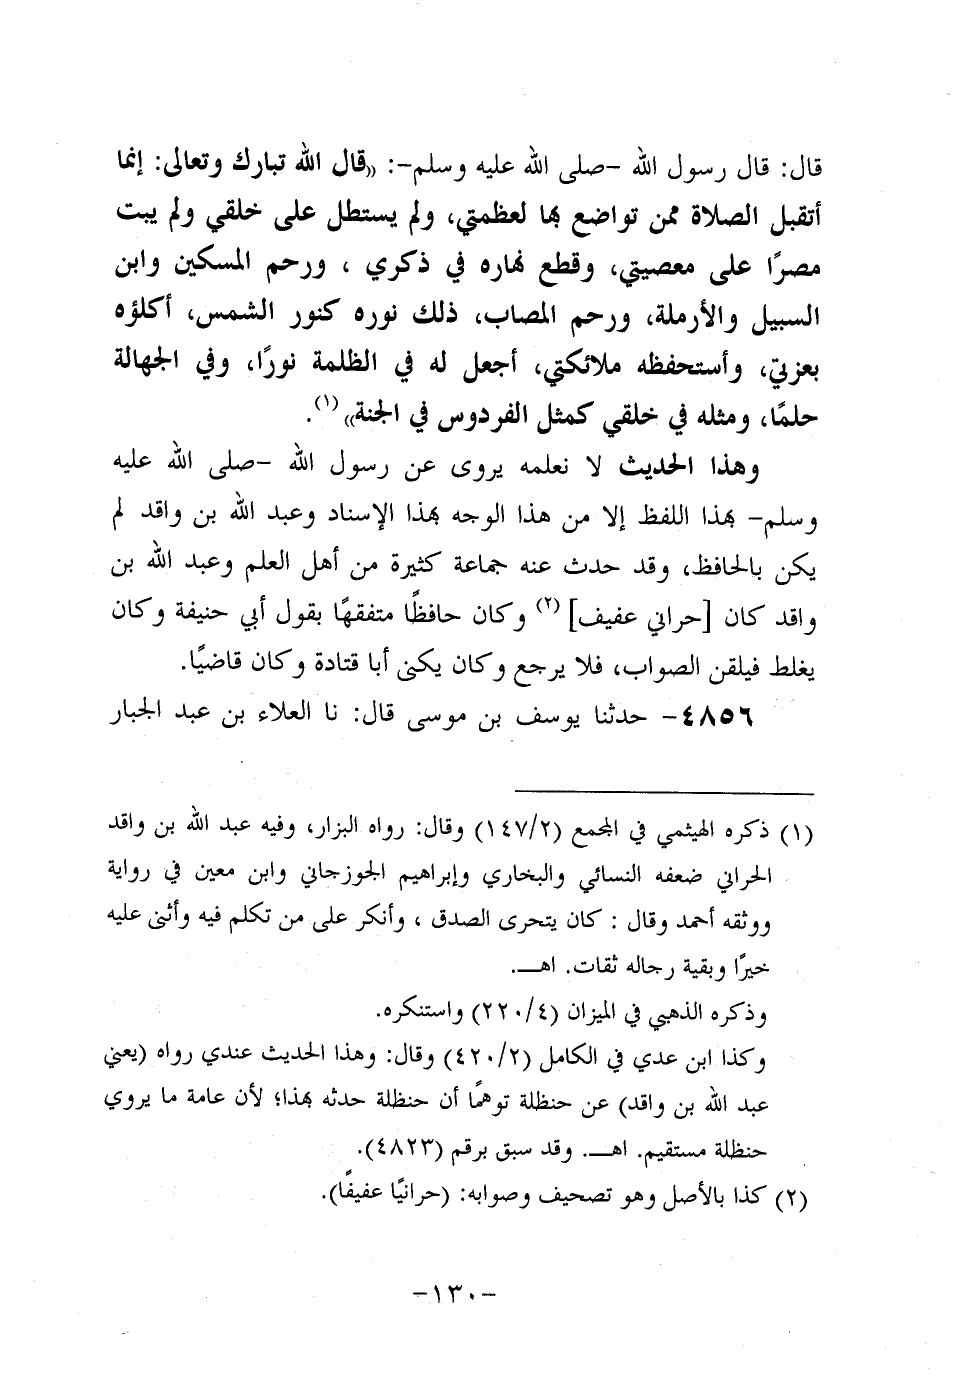 قال: قال رسول الله -صلى الله عليه وسلم-: «قال الله تبارك وتعالى: إنما
أتقبل الصلاة ممن تواضع بها لعظمتي، ولم يستطل على خلقي ولم يبت
مصرًا على معصيتي، وقطع نهاره في ذكري ، ورحم المسكين وابن
السبيل والأرملة، ورحم المصاب، ذلك نوره كنور الشمس، أكلؤه
بعزتي، وأستحفظه ملائكتي، أجعل له في الظلمة نورًا، وفي الجهالة
حلمًا، ومثله في خلقي كمثل الفردوس في الجنة» (١).
وهذا الحديث لا نعلمه يروى عن رسول الله -صلى الله عليه
وسلم- بهذا اللفظ إلا من هذا الوجه بهذا الإسناد وعبد الله بن واقد لم
يكن بالحافظ، وقد حدث عنه جماعة كثيرة من أهل العلم وعبد الله بن
واقد كان [حراني عفيف] (٢) وكان حافظًا متفقهًا بقول أبي حنيفة وكان
يغلط فيلقن الصواب، فلا يرجع وكان يكنى أبا قتادة وكان قاضيًا.
٤٨٥٦- حدثنا يوسف بن موسى قال: نا العلاء بن عبد الجبار
(١) ذكره الهيثمي في المجمع (١٤٧/٢) وقال: رواه البزار، وفيه عبد الله بن واقد
الحراني ضعفه النسائي والبخاري وإبراهيم الجوزجاني وابن معين في رواية
ووثقه أحمد وقال : كان يتحرى الصدق ، وأنكر على من تكلم فيه وأثنى عليه
خيرًا وبقية رجاله ثقات. اهـ.
وذكره الذهبي في الميزان (٢٢٠/٤) واستنكره.
وكذا ابن عدي في الكامل (٤٢٠/٢) وقال: وهذا الحديث عندي رواه (يعني
عبد الله بن واقد) عن حنظلة توهمًا أن حنظلة حدثه بهذا؛ لأن عامة ما يروي
حنظلة مستقيم. اهـ. وقد سبق برقم (٤٨٢٣).
(٢) كذا بالأصل وهو تصحيف وصوابه: (حرانيًا عفيفًا).
-١٣٠-